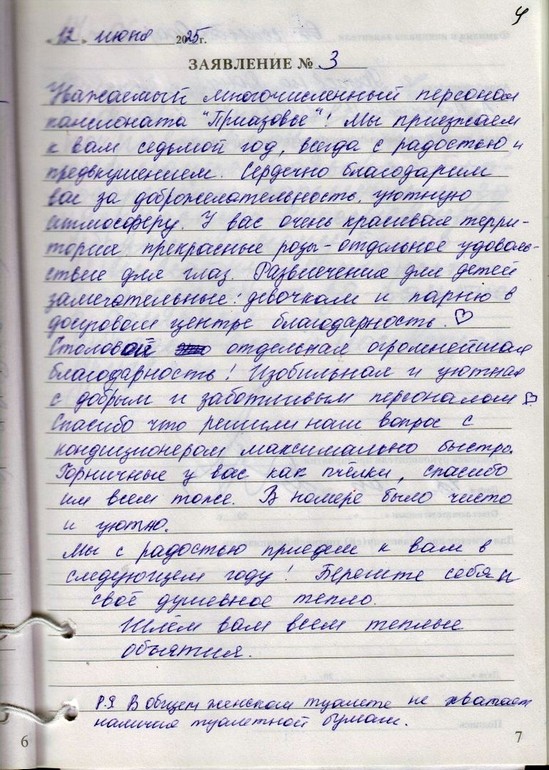 9
12 июня 2025г.
ЗАЯВЛЕНИЕ № 3
Уважаемый многочисленный персонал
пансионата "Приазовье"! Мы приезжаем
к вам седьмой год, всегда с радостью и
предвкушением. Сердечно благодарим
вас за доброжелательность, уютную
атмосферу. У вас очень красивая терри-
тория, прекрасные розы - отдельное удоволь-
ствие для глаз. Развлечения для детей
замечательные: девочкам и парню в
досуговом центре благодарность. ♡
Столовой отдельная огромнейшая
благодарность! Изобильная и уютная
с добрым и заботливым персоналом ♡
Спасибо что решили наш вопрос с
кондиционером максимально быстро.
Горничные у вас как пчёлки, спасибо
им всем тоже. В номере было чисто
и уютно.
Мы с радостью приедем к вам в
следующем году! Берегите себя и
своё душевное тепло.
Шлём вам всем теплые
объятия.
P.S. В общем женском туалете не хватает
наличия туалетной бумаги.
6
7